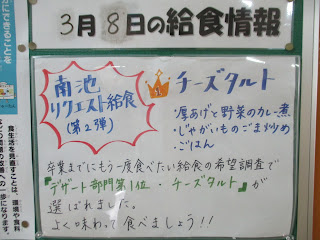 3月8日の給食情報
南池
リクエスト給食
(第2弾)
チーズタルト
・厚あげと野菜のカレー煮
・じゃがいものごま炒め
・ごはん
卒業までにもう一度食べたい給食の希望調査で
『デザート部門第1位・チーズタルト』が
選ばれました。
よく味わって食べましょう!!
にできることを
食生活を見直すことは、環境や食料